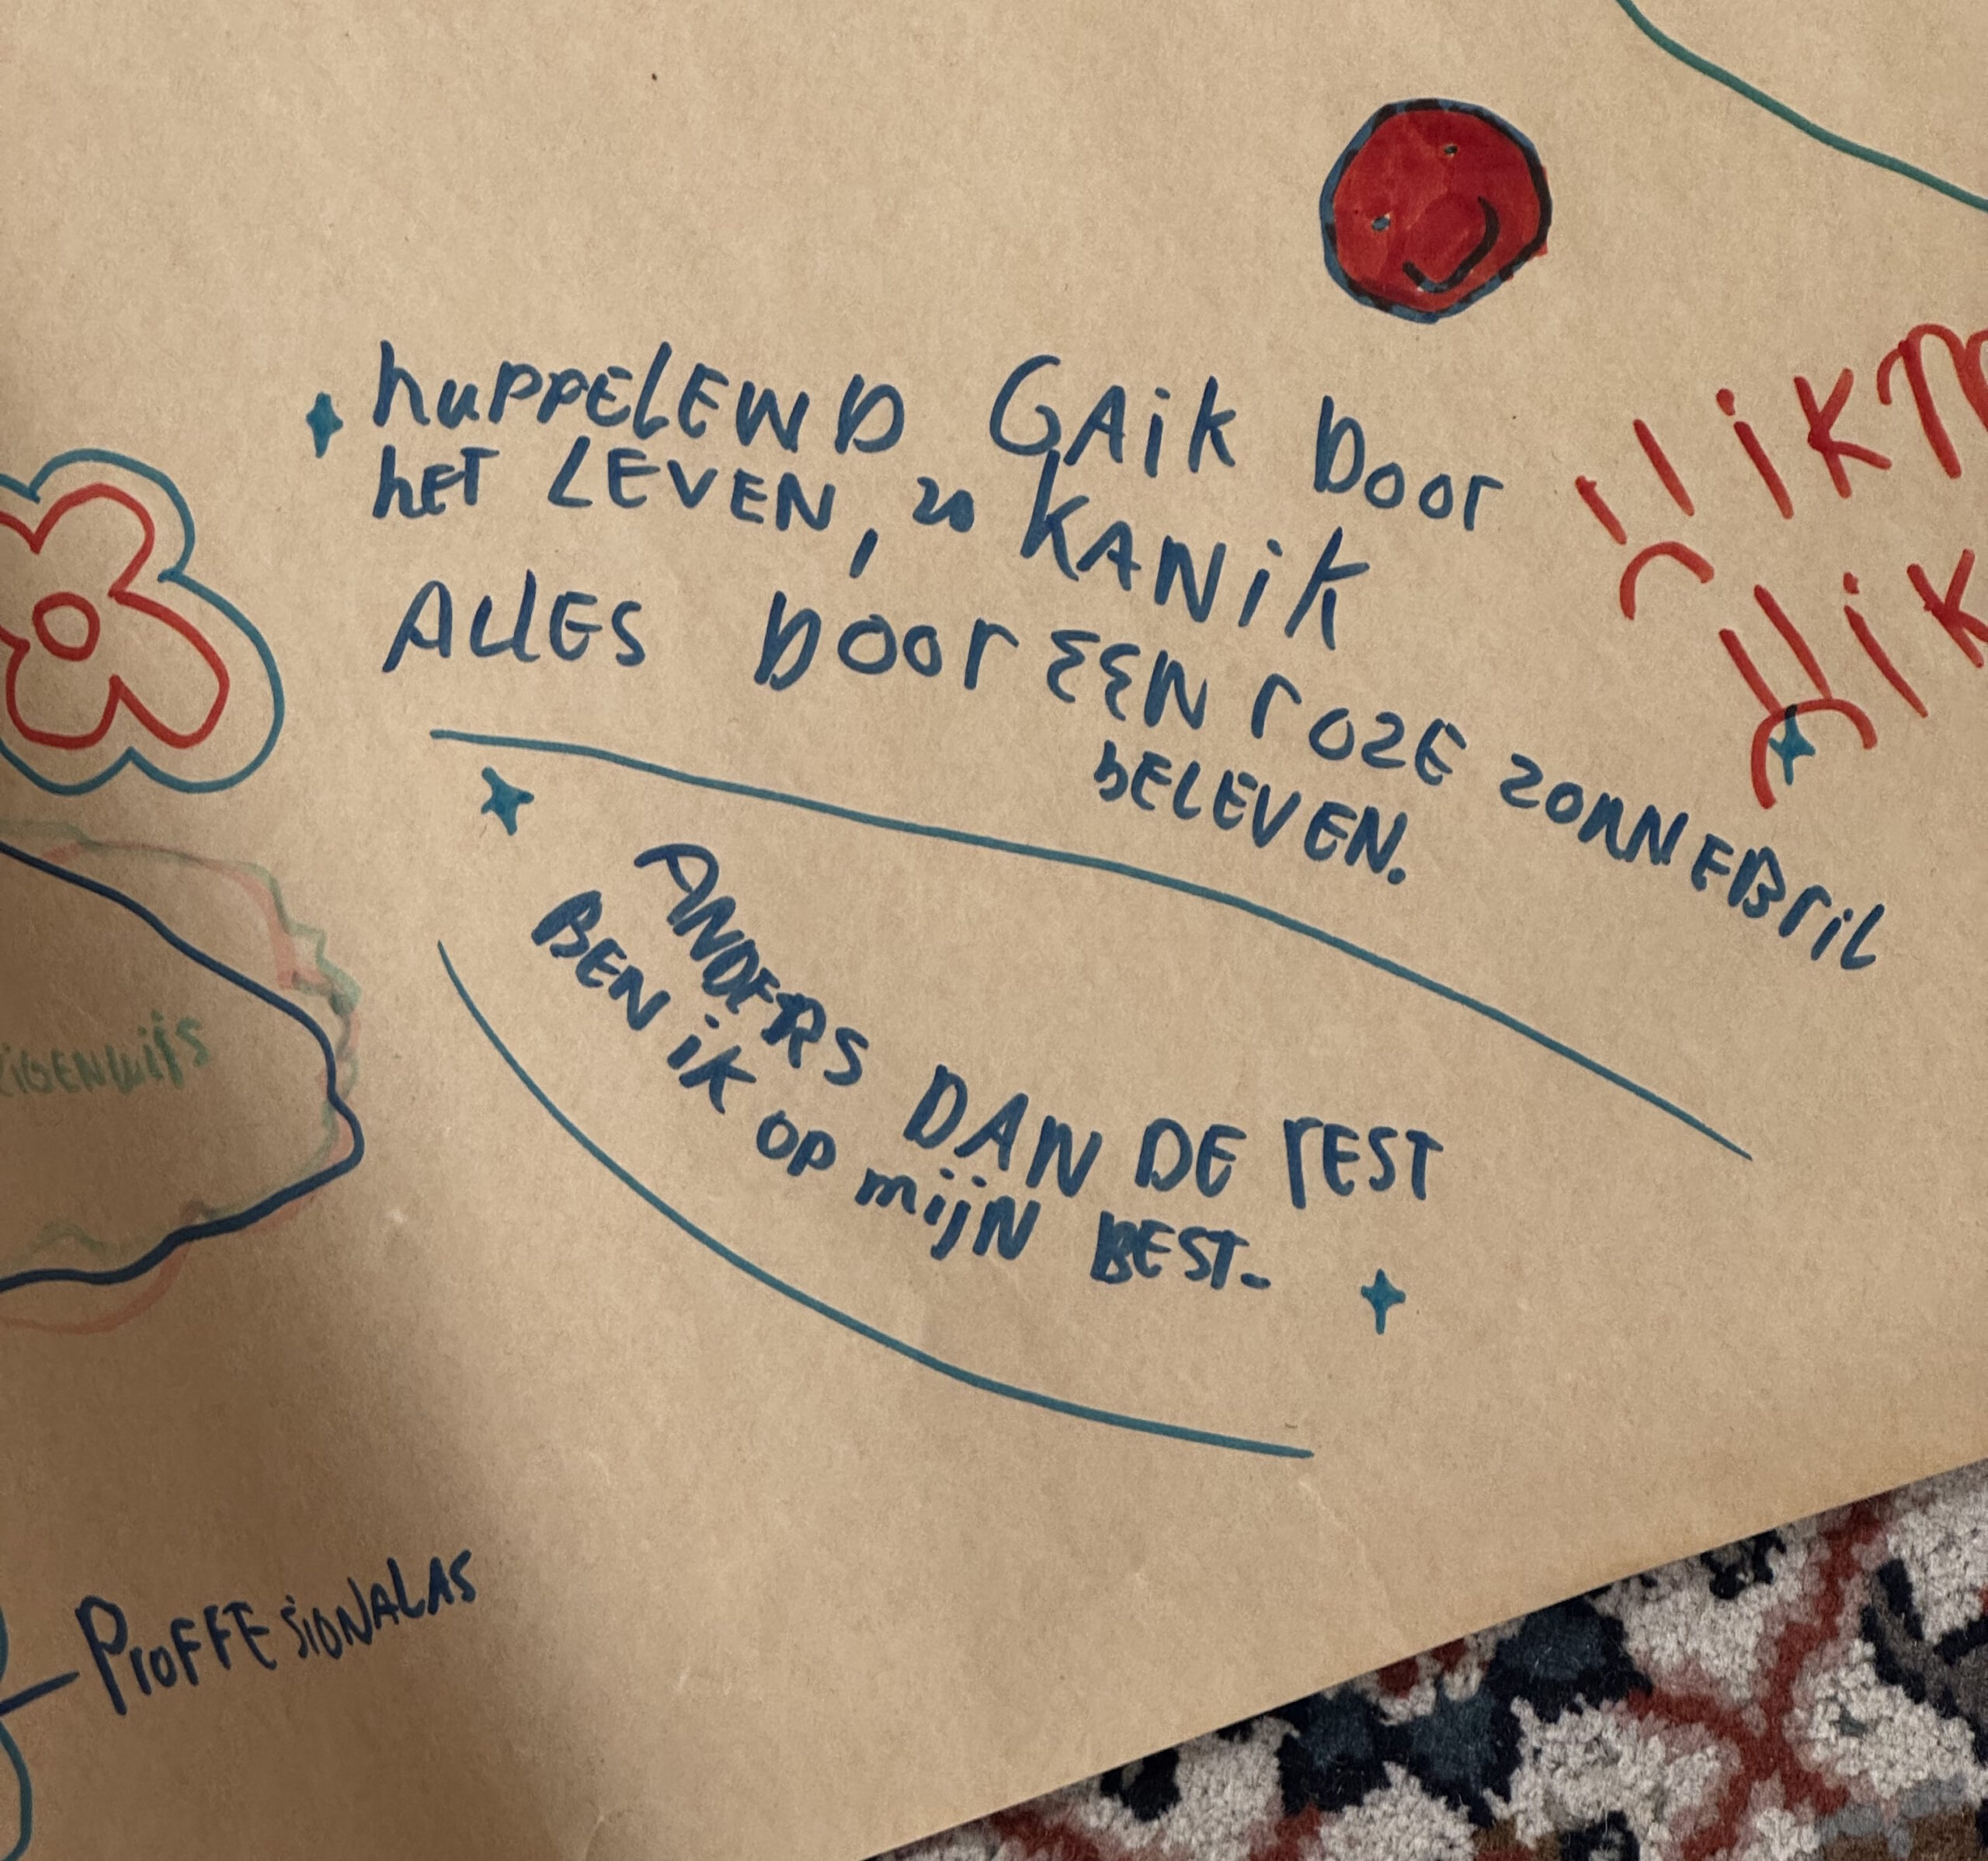 huppELEND GAik Door
hET LEVEN, zo KANiK
AllES Door EEN rozE zonNEBril
bELEVEN.
ANDERS DAN DE rEST
BEN iK op mijN BEST.
EiGENWijS
ProFFESiONALAS
iK
iK